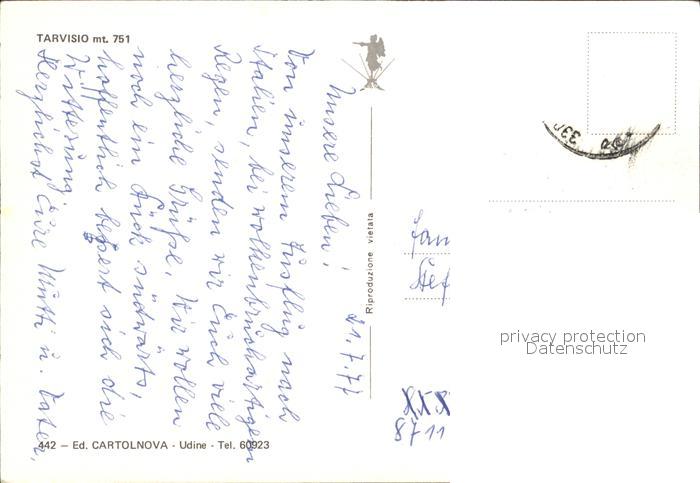 TARVISIO mt. 751
Unsere Lieben! 21.7.77
Von unserem Ausflug nach
Italien, bei wolkenbruchartigem
Regen, senden wir Euch viele
herzliche Grüße. Wir wollen
noch ein Stück südwärts,
hoffentlich bessert sich die
Witterung.
Herzlichst Eure Mutti u. Vater.
Riproduzione vietata
442 — Ed. CARTOLNOVA - Udine - Tel. 60923
Fam
Stef
8711
privacy protection
Datenschutz